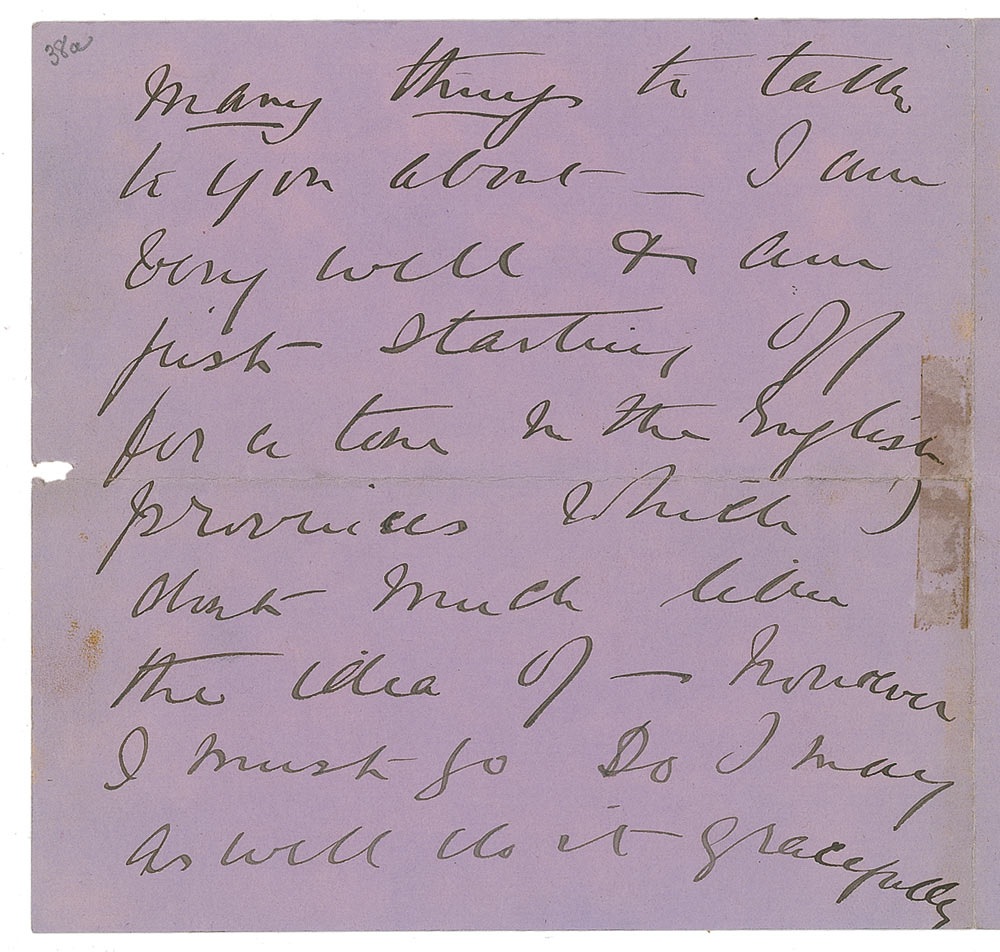 38a
Many things to talk
to you about _ I am
very well & am
just starting off
for a tour in the English
provinces which I
dont much like
the idea of — however
I must go So I may
as well do it gracefully